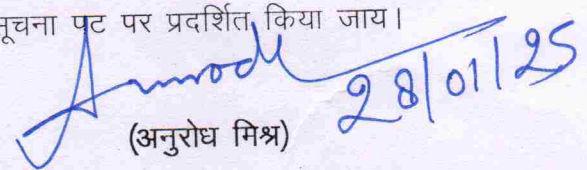 सूचना पट पर प्रदर्शित किया जाय।
Anurodh
28/01/25
(अनुरोध मिश्र)